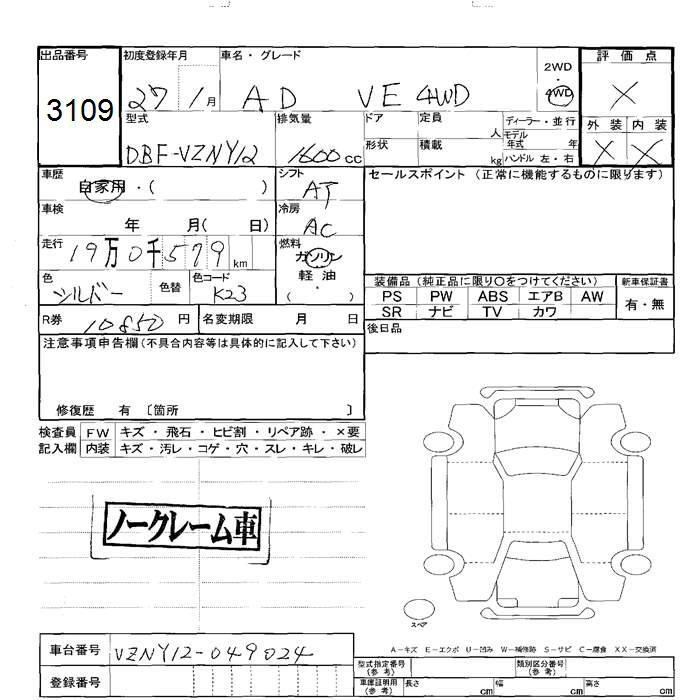 出品番号 初度登録年月 車名・グレード 評価点
3109 27 1月 AD VE 4WD 2WD・4WD X
型式 排気量 ドア 定員 人 ディーラー・並行 外装 内装
DBF-VZNY12 1600cc 形状 積載 kg モデル年式 年 ハンドル 左・右 X X
車歴 自家用・( ) シフト AT セールスポイント(正常に機能するものに限ります)
車検 年 月( 日) 冷房 AC
走行 19万0千579km 燃料 ガソリン・軽油・( )
色 シルバー 色替 色コード K23
装備品(純正品に限り○をつけてください) 新車保証書
PS PW ABS エアB AW 有・無
SR ナビ TV カワ
R券 10850円 名変期限 月 日 後日品
注意事項申告欄(不具合内容等は具体的に記入して下さい)
修復歴 有 〔箇所 〕
検査員 FW キズ・飛石・ヒビ割・リペア跡・×要
記入欄 内装 キズ・汚レ・コゲ・穴・スレ・キレ・破レ
ノークレーム車
スペア
A−キズ E−エクボ U−凹み W−補修跡 S−サビ C−腐食 XX−交換済
車台番号 VZNY12-049024
登録番号
型式指定番号(参考) 類別区分番号(参考)
車庫証明用(参考) 長さ cm 幅 cm 高さ cm